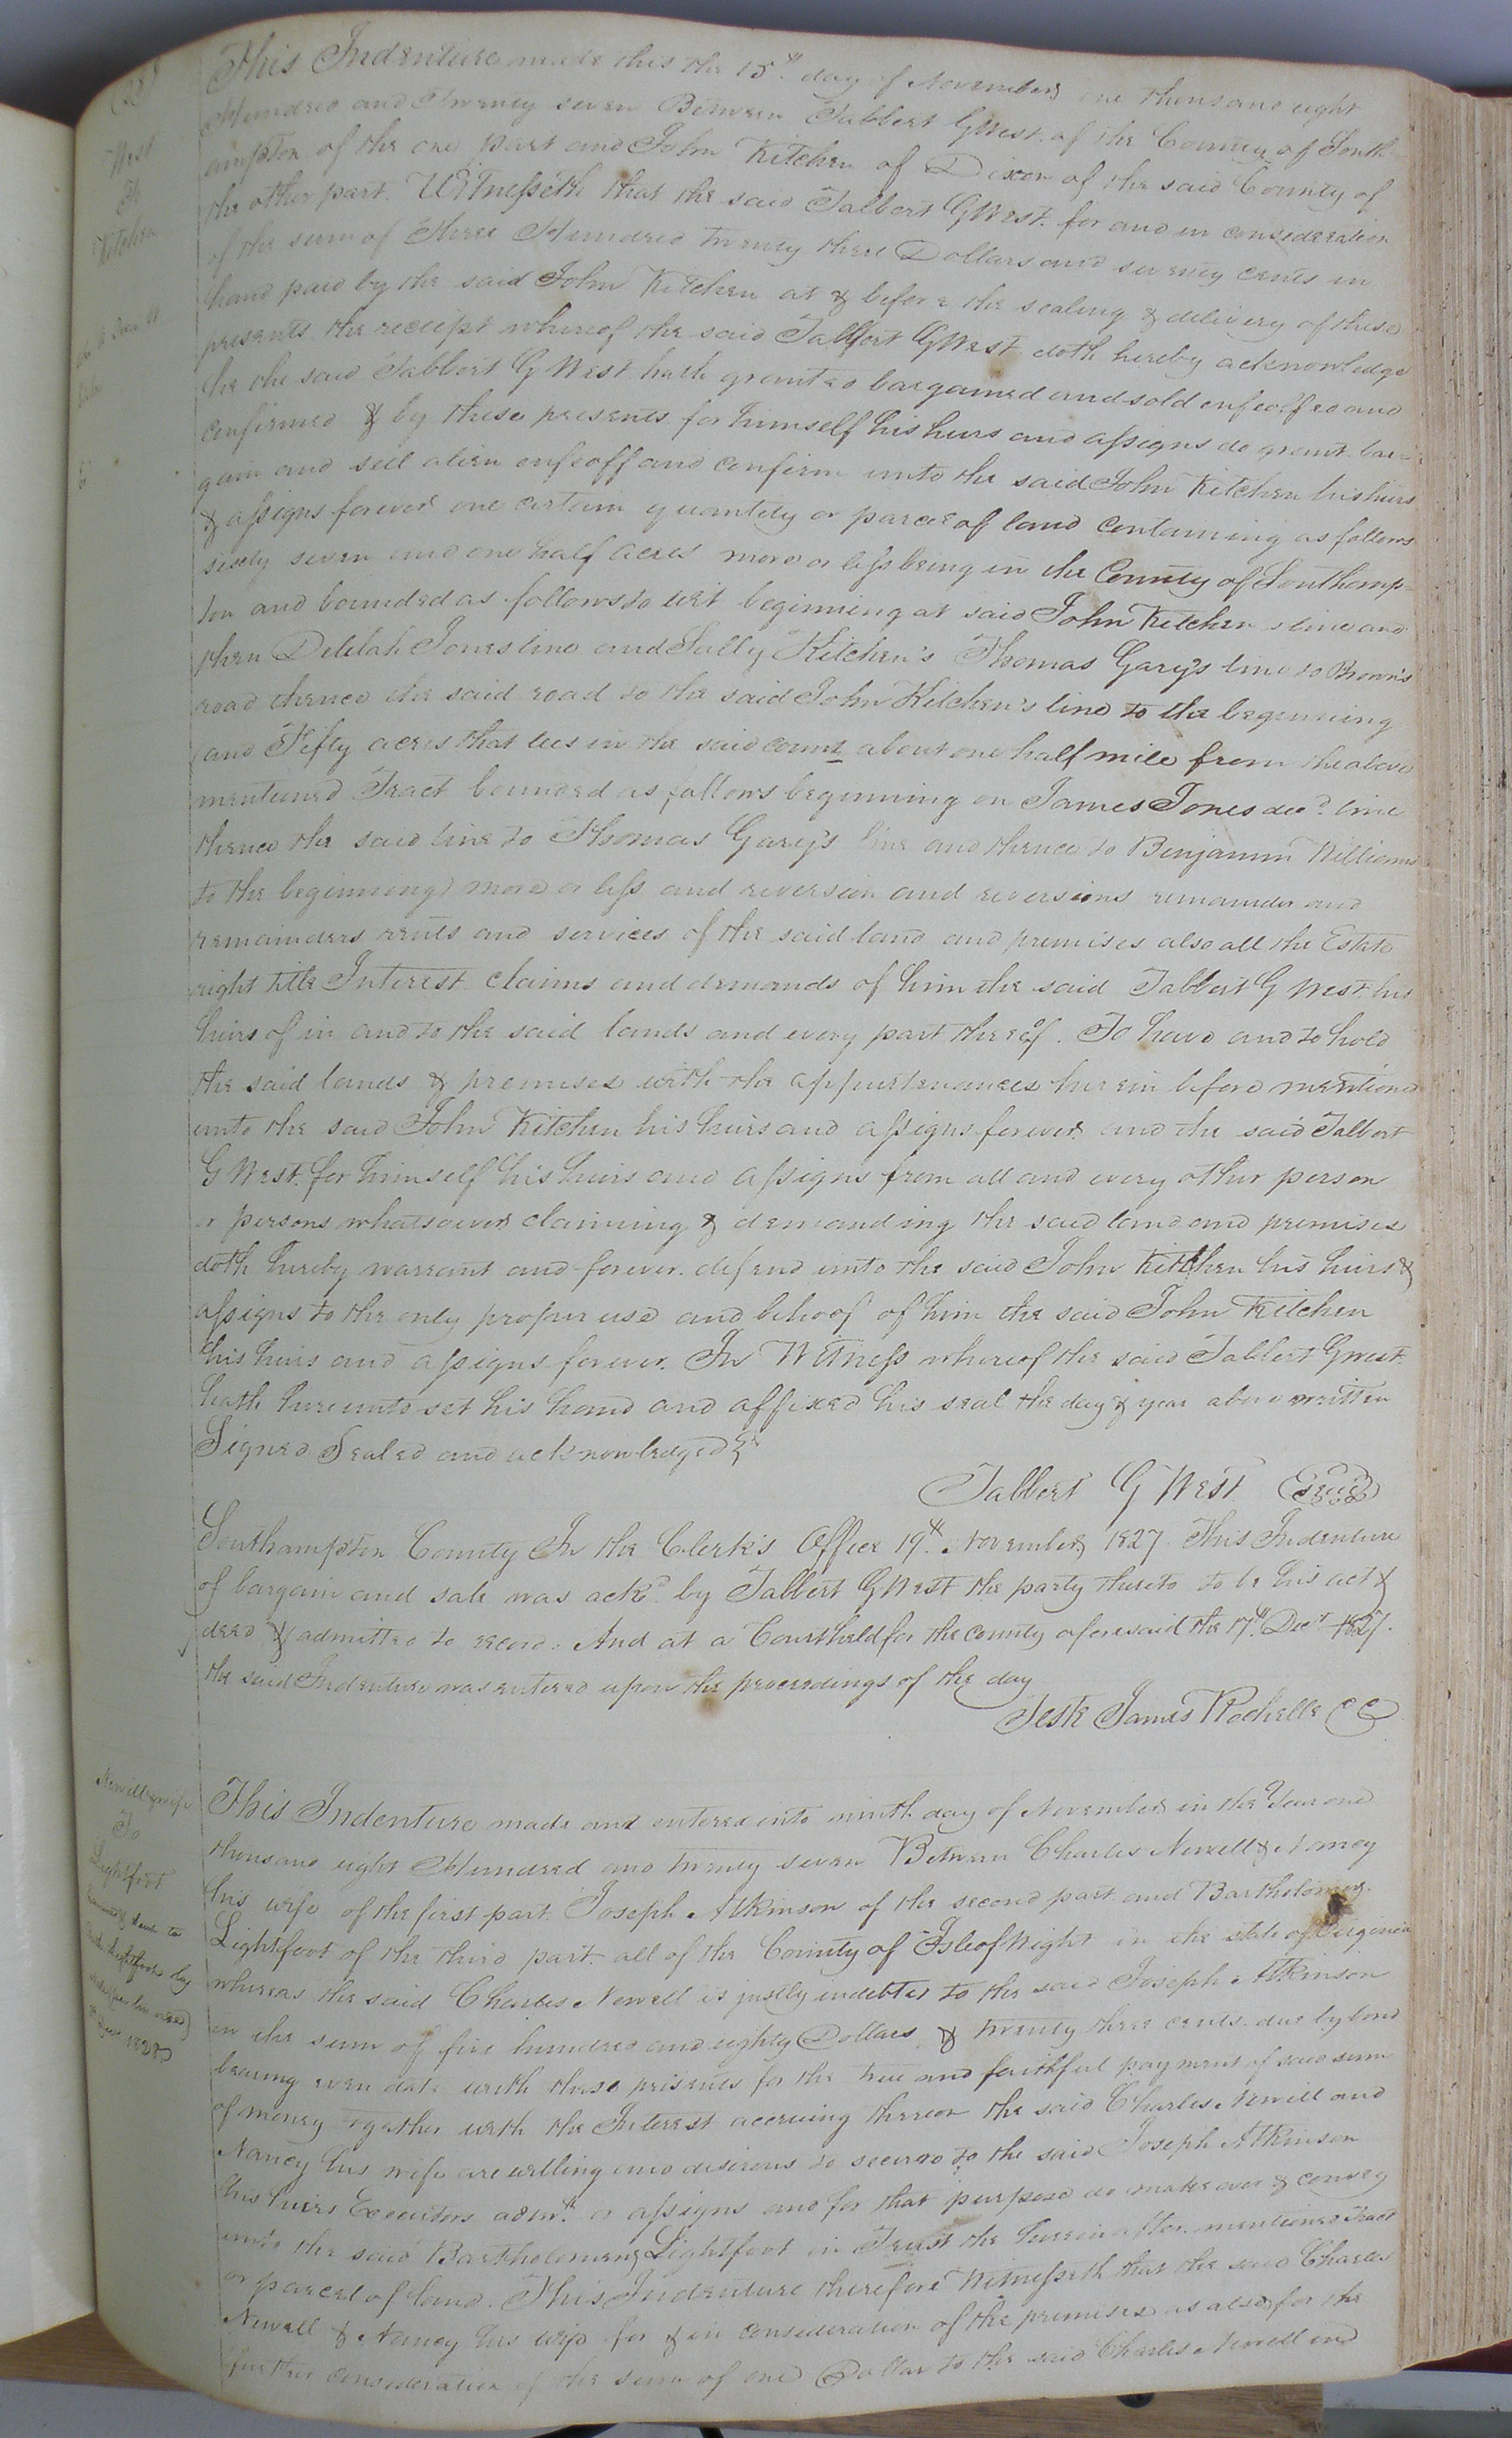 West
To
Kitchen
This Indenture made this the 15th day of November one thousand eight
Hundred and Twenty seven Between Talbert G West of the County of South
ampton of the one part and John Kitchen of Dixon of the said County of
the other part. Witnesseth that the said Talbert G West. for and in consideration
of the sum of three Hundred twenty three Dollars and seventy cents in
hand paid by the said John Kitchen at & before the sealing & delivery of these
presents the receipt whereof the said Talbert G West doth hereby acknowledge
he the said Talbert G West hath granted bargained and sold enfeoffed and
confirmed & by these presents for himself his heirs and assigns do grant bar=
gain and sell alien enfeoff and confirm unto the said John Kitchen his heirs
& assigns forever one certain quantity or parcel of land containing as follows
sixty seven and one half acres more or less being in the County of Southamp=
ton and bounded as follows to wit beginning at said John Kitchen s line and
then Delilah Jones line and Sally Kitchen's Thomas Gary's line to Brown's
road thence the said road to the said John Kitchen's line to the beginning
and Fifty acres that lies in the said count about one half mile from the above
mentioned Tract bounded as follows beginning on James Jones decd. line
thence the said line to Thomas Gary's line and thence to Benjamin Williams
to the beginning more or less and reversion and reversions remainder and
remainders rents and services of the said land and premises also all the Estate
right title Interest claims and demands of him the said Talbert G West. his
heirs of in and to the said lands and every part thereof. To have and to hold
the said lands & premises with the appurtenances herein before mentioned
unto the said John Kitchen his heirs and assigns forever and the said Talbert
G West. for himself his heirs and assigns from all and every other person
or persons whatsoever claiming & demanding the said land and premises
doth hereby warrant and forever defend unto the said John Kitchen his heirs &
assigns to the only proper use and behoof of him the said John Kitchen
his heirs and assigns forever. In Witness whereof the said Talbert G West.
hath hereunto set his hand and affixed his seal the day & year above written
Signed Sealed and acknowledged
Talbert G West Seal
Southampton County In the Clerk's Office 19th November 1827. This Indenture
of bargain and sale was ackd. by Talbert G West the party thereto to be his act &
deed & admitted to record. And at a Court held for the county aforesaid the 17th Decr 1827.
the said Indenture was entered upon the proceedings of the day
Teste James Rochelle CC
Newell & wife
To
Lightfoot
This Indenture made and entered into ninth day of November in the Year one
thousand eight Hundred and twenty seven Between Charles Newell & Nancy
his wife of the first part. Joseph Atkinson of the second part and Bartholomew
Lightfoot of the third part all of the County of Isle of Wight in the state of Virginia
whereas the said Charles Newell is justly indebted to the said Joseph Atkinson
in the sum of five hundred and eighty Dollars & twenty three cents due by bond
bearing even date with these presents for the true and faithful payment of said sum
of money together with the Interest accruing thereon the said Charles Newell and
Nancy his wife are willing and desirous to secure to the said Joseph Atkinson
his heirs Executors admrs. or assigns and for that purpose do make over & convey
unto the said Bartholomew Lightfoot in Trust the herein after mentioned Tract
or parcel of land. This Indenture therefore Witnesseth that the said Charles
Newell & Nancy his wife for & in consideration of the premises as also for the
further consideration of the sum of one Dollar to the said Charles Newell and